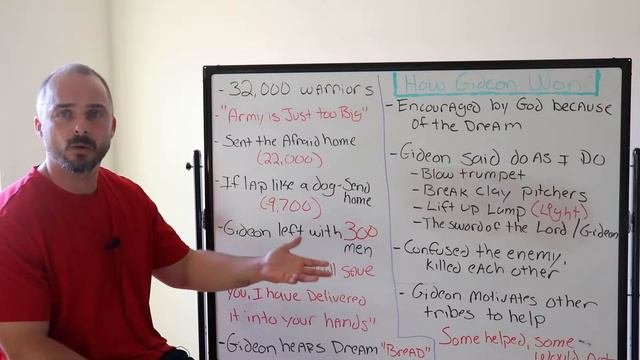 - 32,000 warriors
- "Army is Just too Big"
- Sent the Afraid home
(22,000)
- If lap like a dog - Send
home
(9,700)
- Gideon left with 300
men
save
you, I have Delivered
it into your hands"
- Gideon hears Dream "Bread"
How Gideon Won
- Encouraged by God because
of the Dream
- Gideon said do As I Do
- Blow trumpet
- Break clay pitchers
- Lift up Lamp (Light)
- The sword of the Lord / Gideon
- Confused the enemy,
killed each other
- Gideon motivates other
tribes to help
Some helped, some